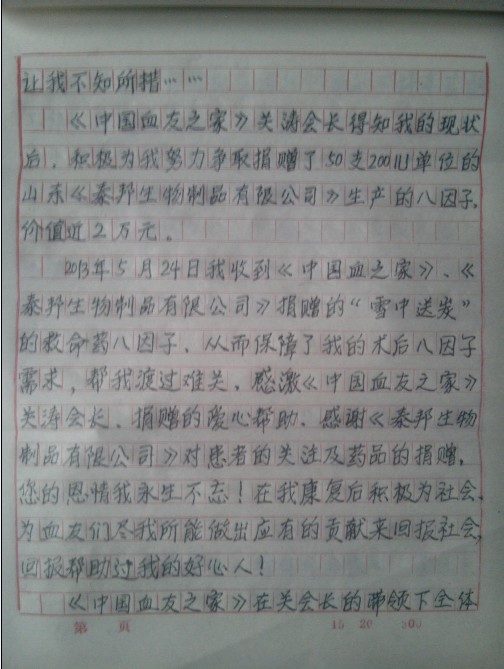 让我不知所措……
《中国血友之家》关涛会长得知我的现状
后，积极为我努力争取捐赠了50支200IU单位的
山东《泰邦生物制品有限公司》生产的八因子，
价值近2万元。
2013年5月24日我收到《中国血之家》、《
泰邦生物制品有限公司》捐赠的“雪中送炭”
的救命药八因子，从而保障了我的术后八因子
需求，帮我渡过难关，感激《中国血友之家》
关涛会长，捐赠的爱心帮助，感谢《泰邦生物
制品有限公司》对患者的关注及药品的捐赠，
您的恩情我永生不忘！在我康复后积极为社会、
为血友们尽我所能做出应有的贡献来回报社会，
回报帮助过我的好心人！
《中国血友之家》在关会长的带领下全体
第 页 15 20